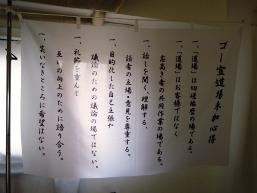 ゴー宣道場参加心得
一、「道場」は切磋琢磨の場である。
一、「道場」はお客様ではなく
志高き者の共同作業の場である。
一、話しを聞く、理解する。
話者の立場・意見を尊重する。
一、目的化した自己主張や
議論のための議論の場ではない。
一、礼節を重んじ
互いの向上のために語り合う。
一、笑いなきところに希望はない。